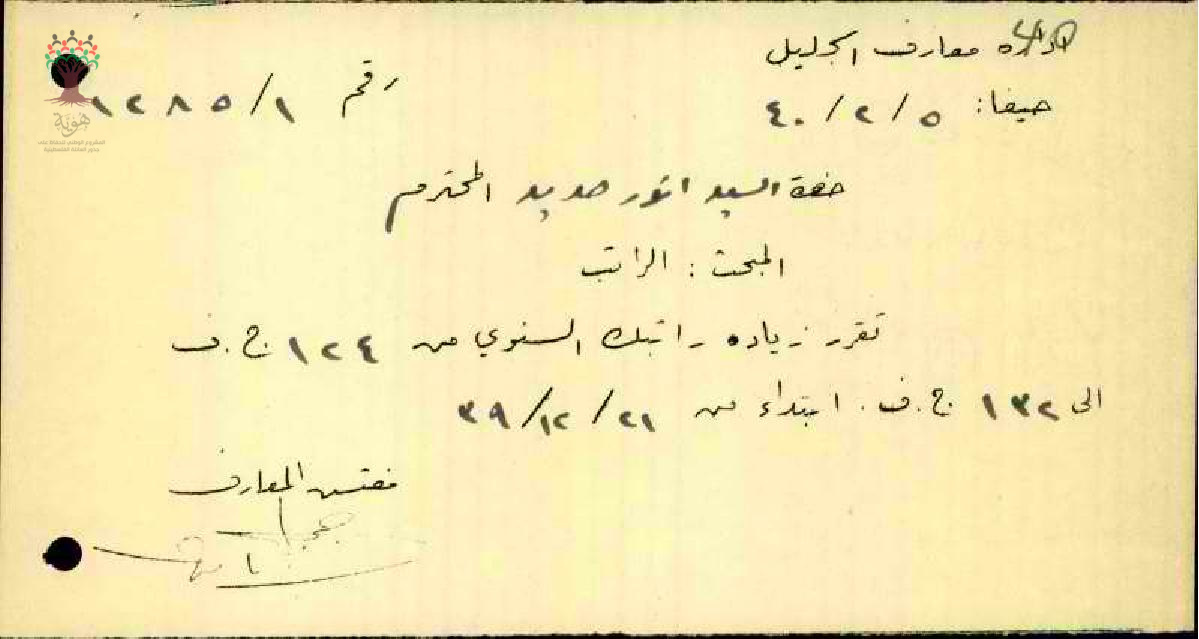 اداره معارف الجليل
حيفا: ٥/٢/٤٠
رقم ١/١٢٨٥
حضرة السيد انور حديد المحترم
المبحث: الراتب
تقرر زياده راتبك السنوي من ١٢٤ ج.ف
الى ١٣٢ ج.ف. ابتداء من ٢١/١٢/٣٩
مفتش المعارف
هوية